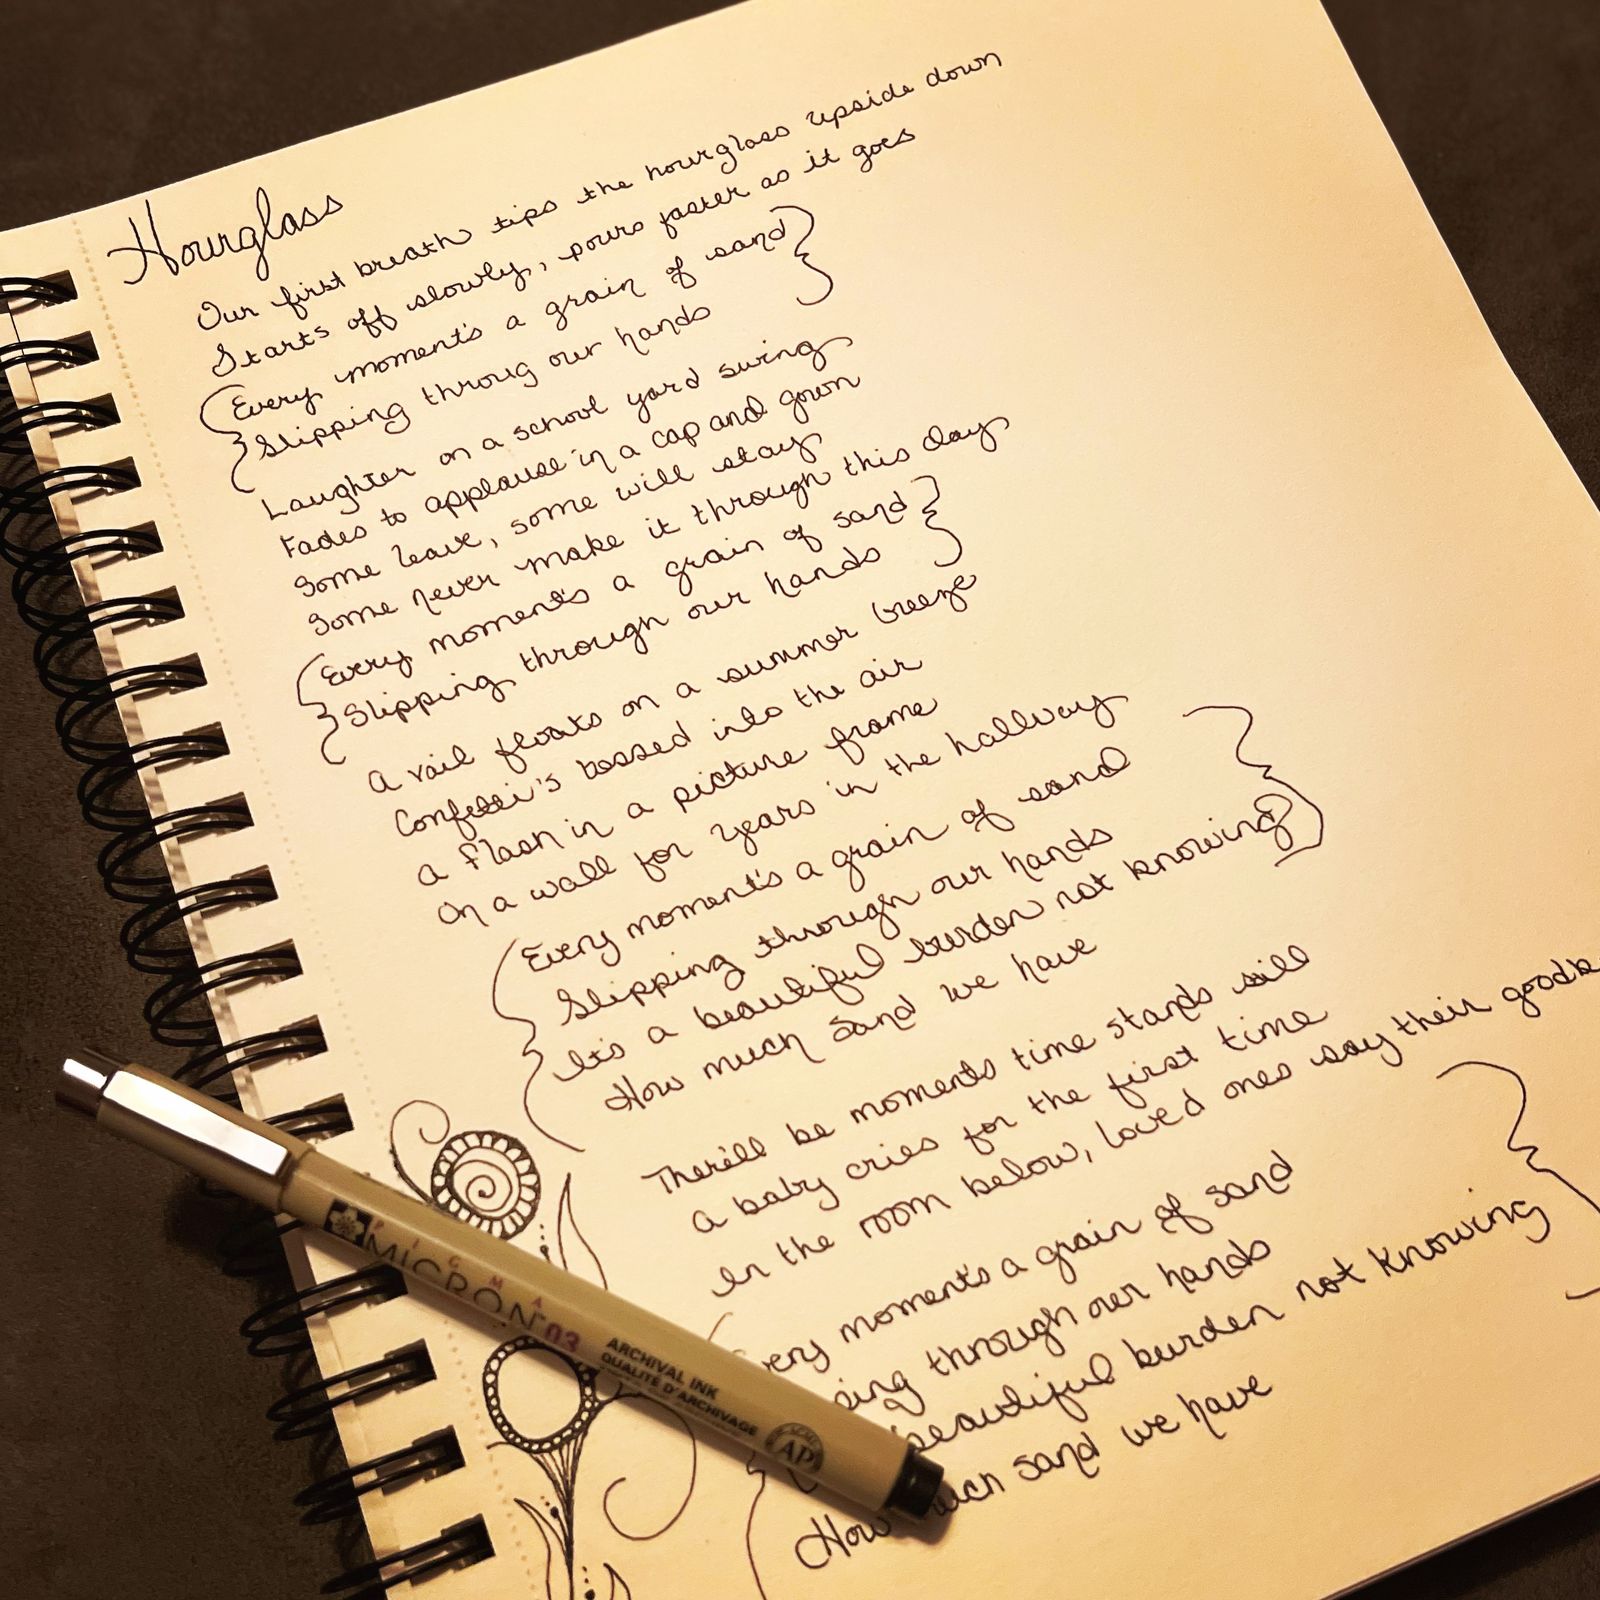 Hourglass
Our first breath tips the hourglass upside down
Starts off slowly, pours faster as it goes
Every moment's a grain of sand
Slipping throug our hands
Laughter on a school yard swing
Fades to applause in a cap and gown
Some leave, some will stay
Some never make it through this day
Every moment's a grain of sand
Slipping through our hands
A vail floats on a summer breeze
Confetti's tossed into the air
A flash in a picture frame
On a wall for years in the hallway
Every moment's a grain of sand
Slipping through our hands
It's a beautiful burden not knowing
How much sand we have
There'll be moments time stands still
A baby cries for the first time
In the room below, loved ones say their goodb
very moment's a grain of sand
ping through our hands
beautiful burden not knowing
How uch sand we have
PIGMA
MICRON 03
ARCHIVAL INK
QUALITÉ D'ARCHIVAGE
AP